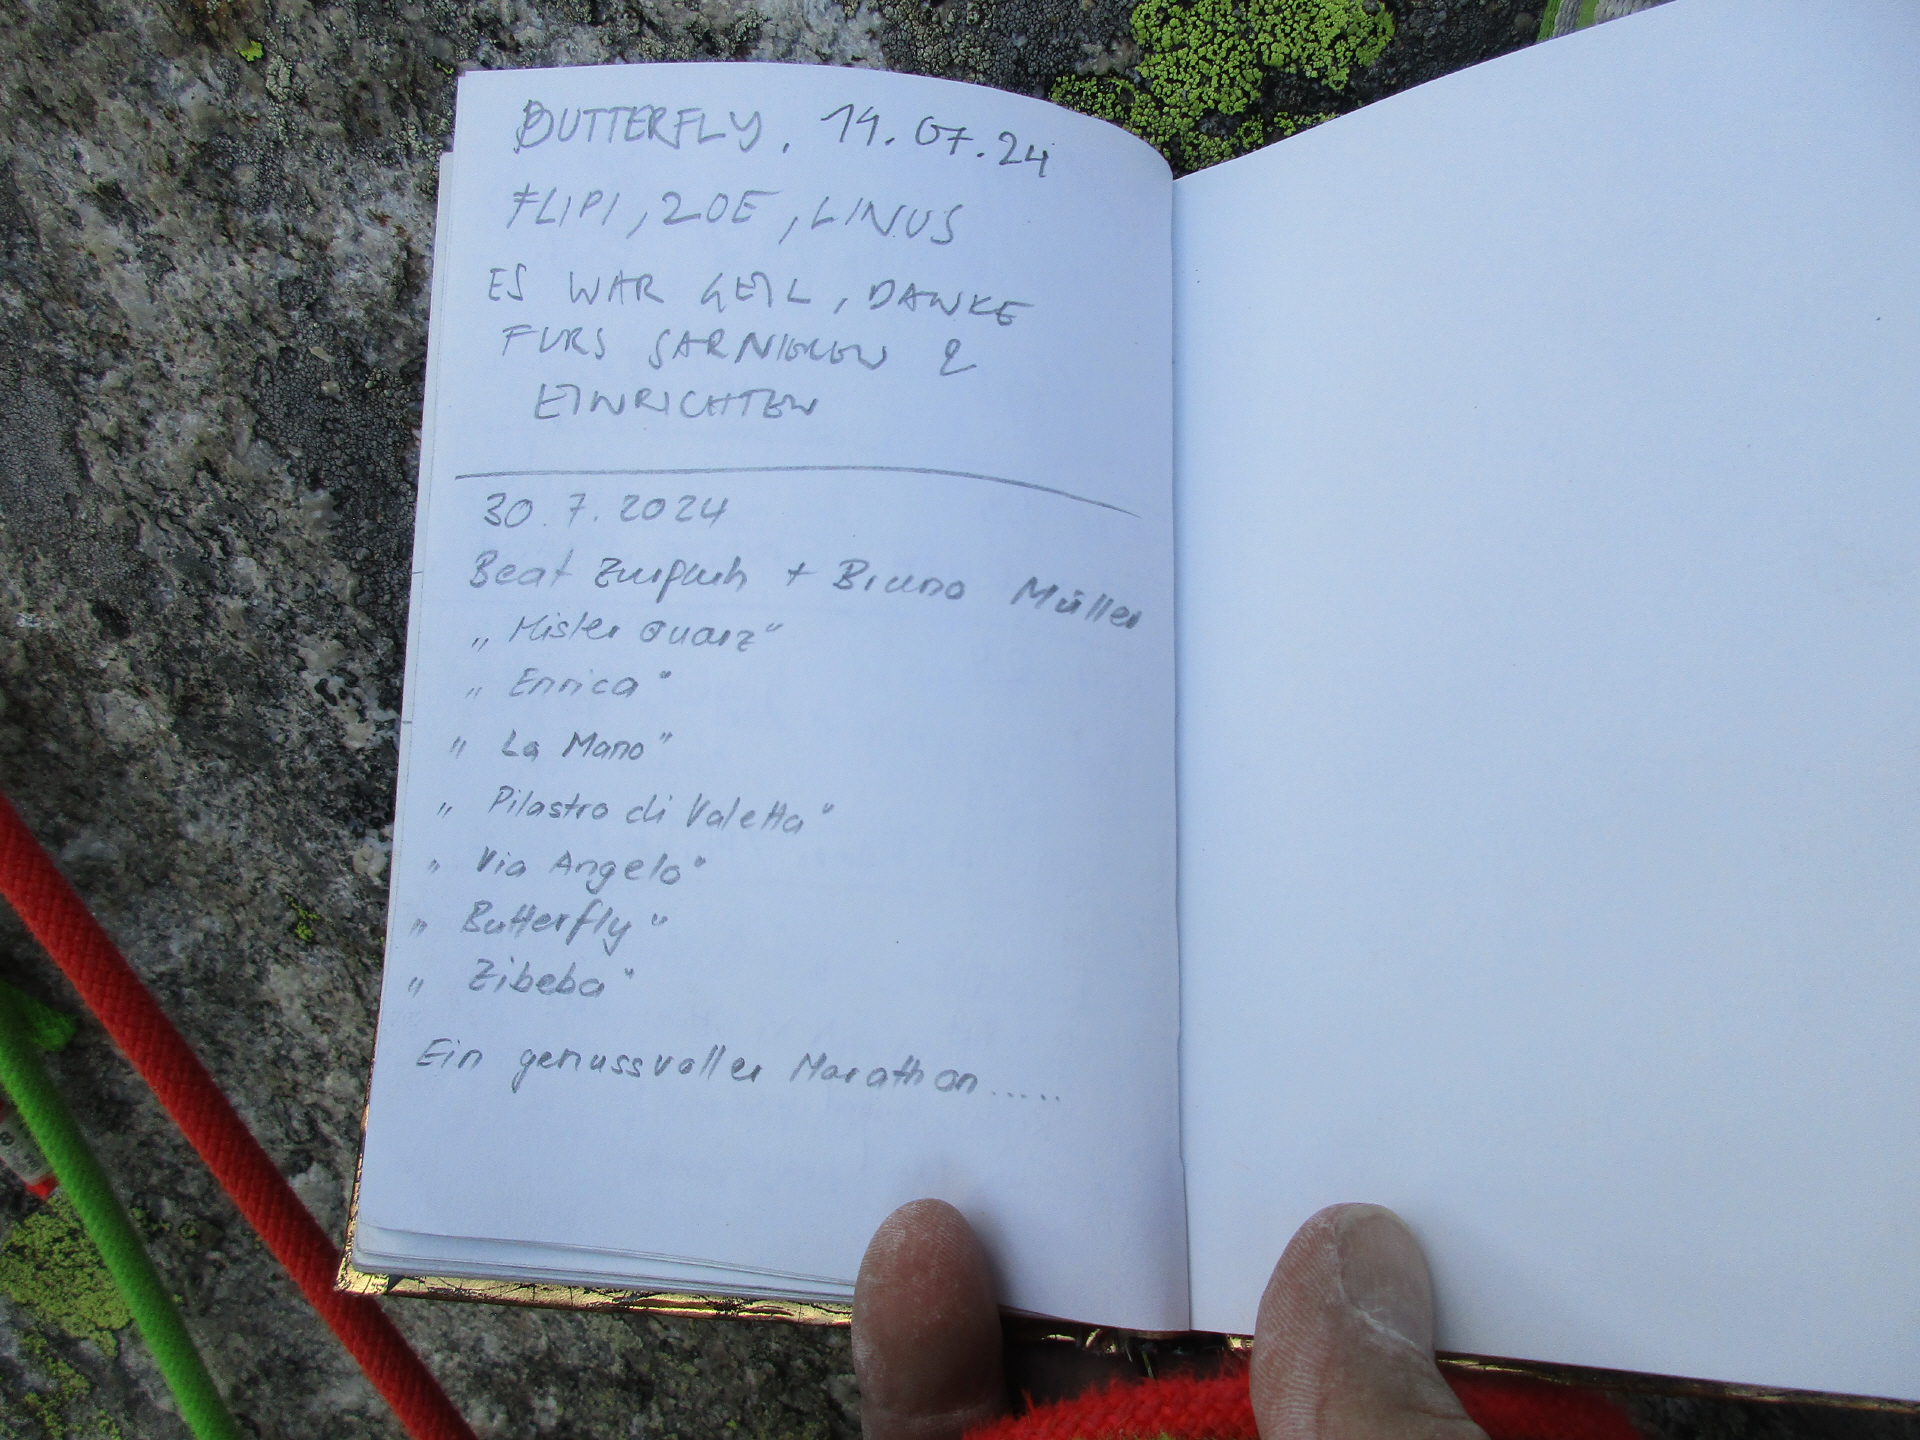 BUTTERFLY, 14.07.24
FLIPI, ZOE, LINUS
ES WAR GEIL, DANKE
FURS SARNIEREN &
EINRICHTEN
30.7.2024
Beat + Bruno Müller
„Mister Quarz“
„Enrica“
„La Mano“
„Pilastro di Valetta“
„Via Angelo“
„Butterfly“
„Zibeba“
Ein genussvoller Marathon.....